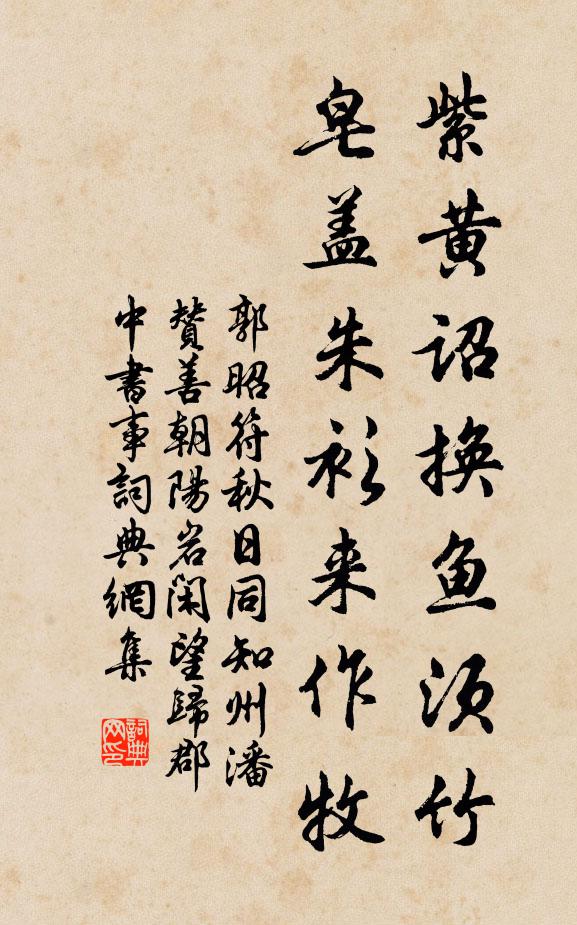 紫黄诏换鱼须竹
皂盖朱衫来作牧
郭昭符秋日同知州潘
賛善朝陽岩閑望歸郡
中書事詞典網集
詞典网印